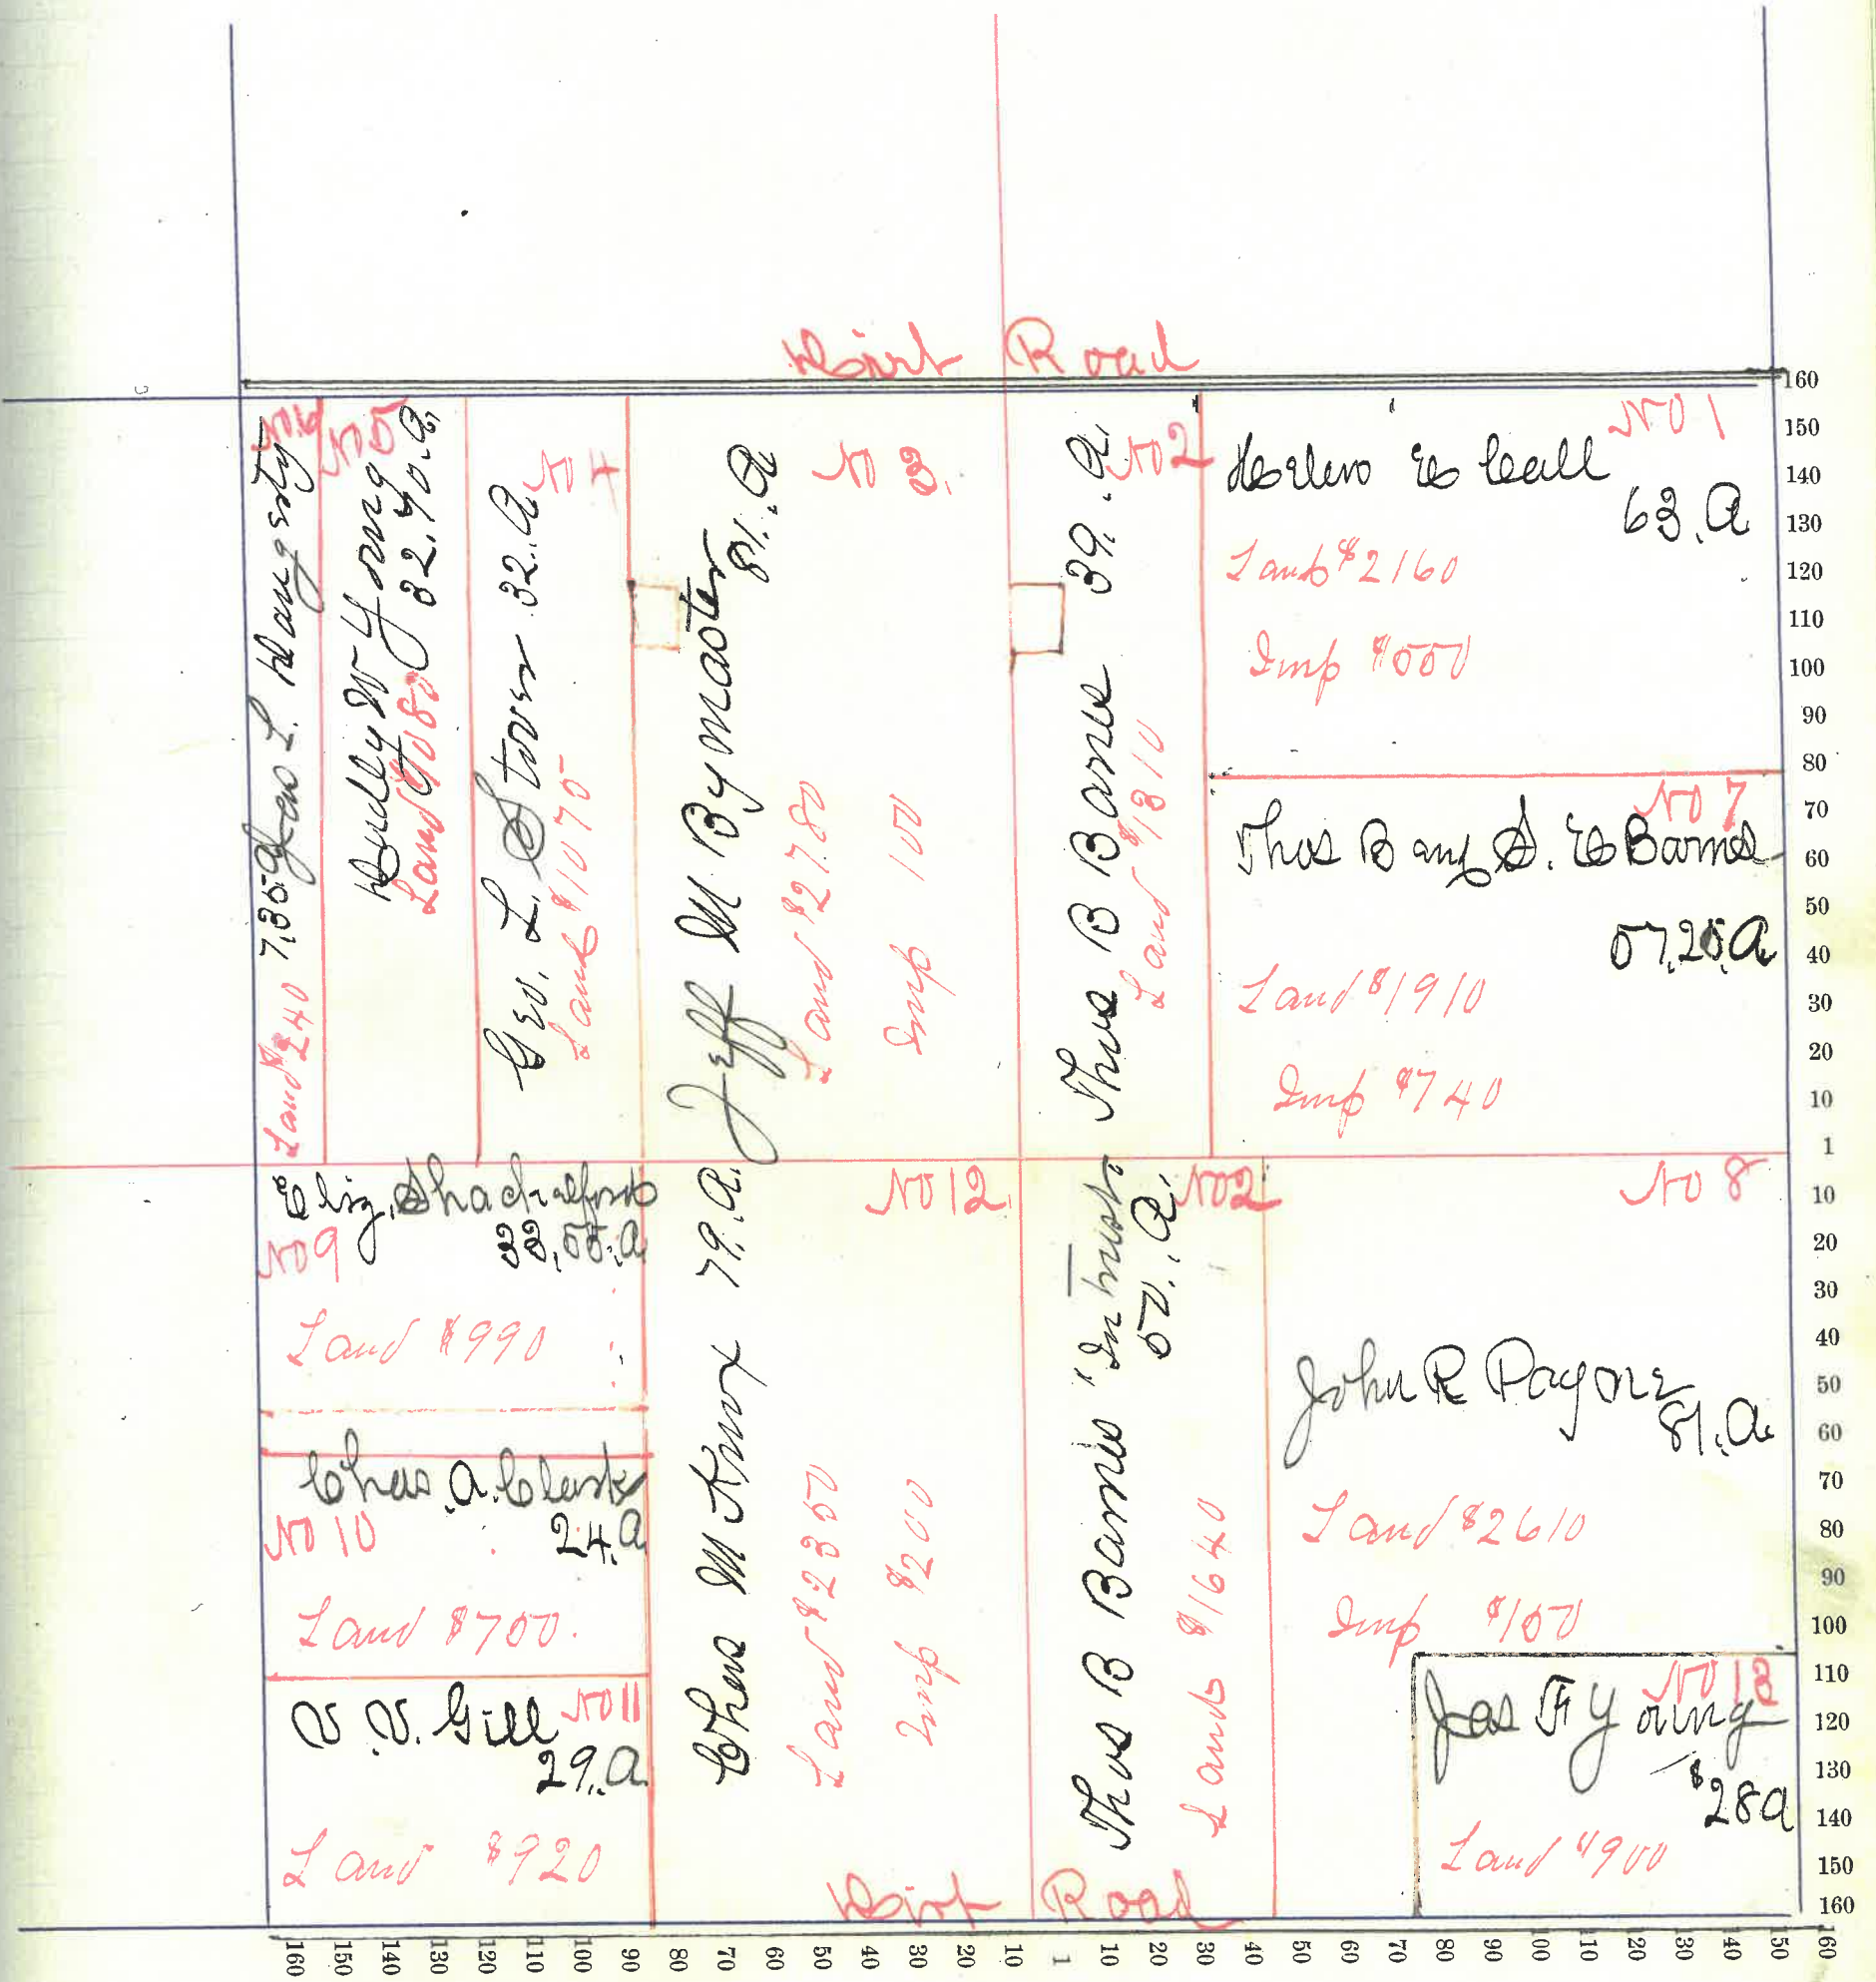 Dirt Road
No 6
Geo L. Haugesty
7.35.a
Land $240
No 5
Dudley W Yong
32.40.a.
Land $1080
No 4
Geo. L. Stover 32.a
Land $1070
No 3.
Jeff M Bymaster
81.a
Land $2780
Imp 100
No 2
Thos B Barnes 39.a.
Land $1310
No 1
Helen E Call
63.a
Land $2160
Imp $550
No 7
Thos B and S. E Barnes
57.25.a
Land $1910
Imp $740
Eliz. Shackelford
No 9
33.55.a
Land $990
Chas. A. Clark
No 10
24.a
Land $700.
No 11
V. V. Gill
29.a
Land $920
No 12
Chas M Knox 79.a.
Land $2350
Imp $200
No 2
Thos B Barnes "In Trust"
50.a.
Land $1640
No 8
John R Payone
81.a.
Land $2610
Imp $150
No 13
Jas F Young
$28a
Land $900
Dirt Road
160
150
140
130
120
110
100
90
80
70
60
50
40
30
20
10
1
10
20
30
40
50
60
70
80
90
100
110
120
130
140
150
160
160 150 140 130 120 110 100 90 80 70 60 50 40 30 20 10 1 10 20 30 40 50 60 70 80 90 100 10 20 30 40 50 160